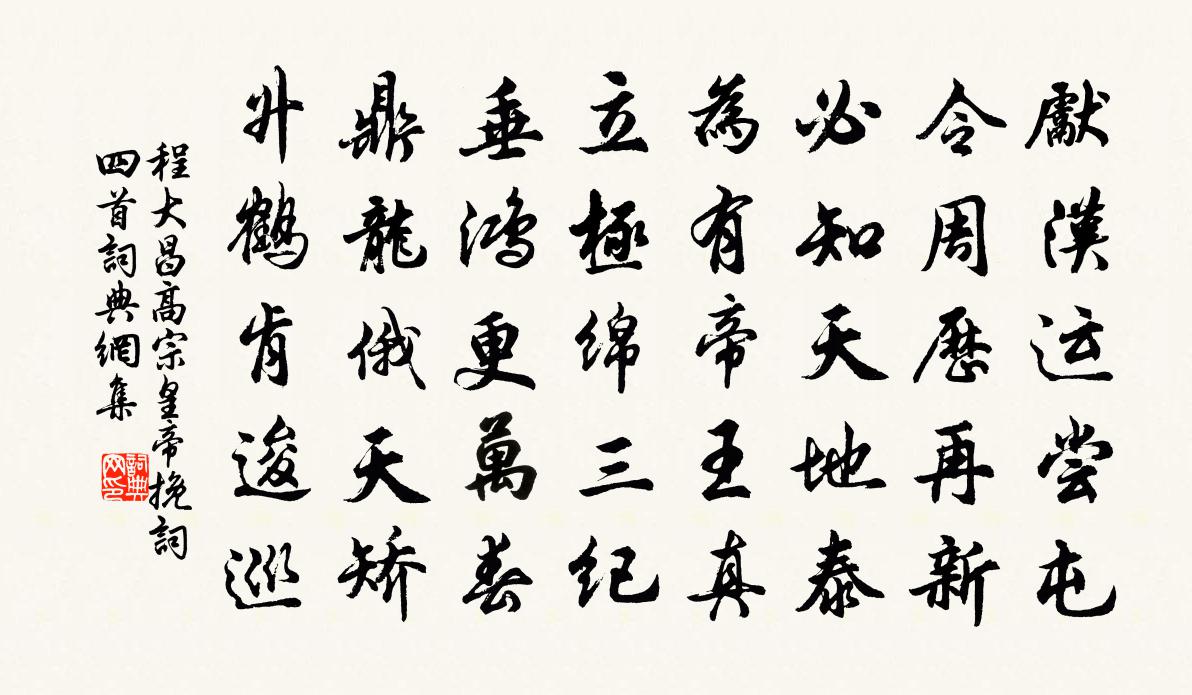 獻漢运尝屯
令周歷再新
必知天地泰
為有帝王真
立極绵三纪
垂鴻更萬春
鼎龍俄天矫
升鶴肯逡巡
程大昌高宗皇帝挽詞
四首詞典網集
詞典网印